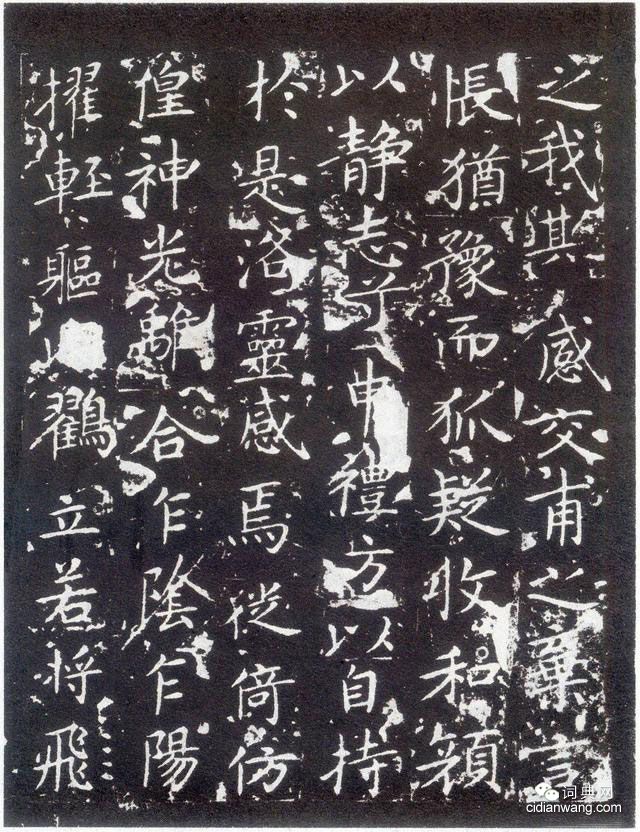 之我其感交甫之棄言
悵猶豫而狐疑收和顔
以静志兮申禮方以自持
於是洛靈感焉徙倚仿
偟神光離合乍陰乍陽
擢輕軀鸖立若将飛
词典网
cidianwang.com